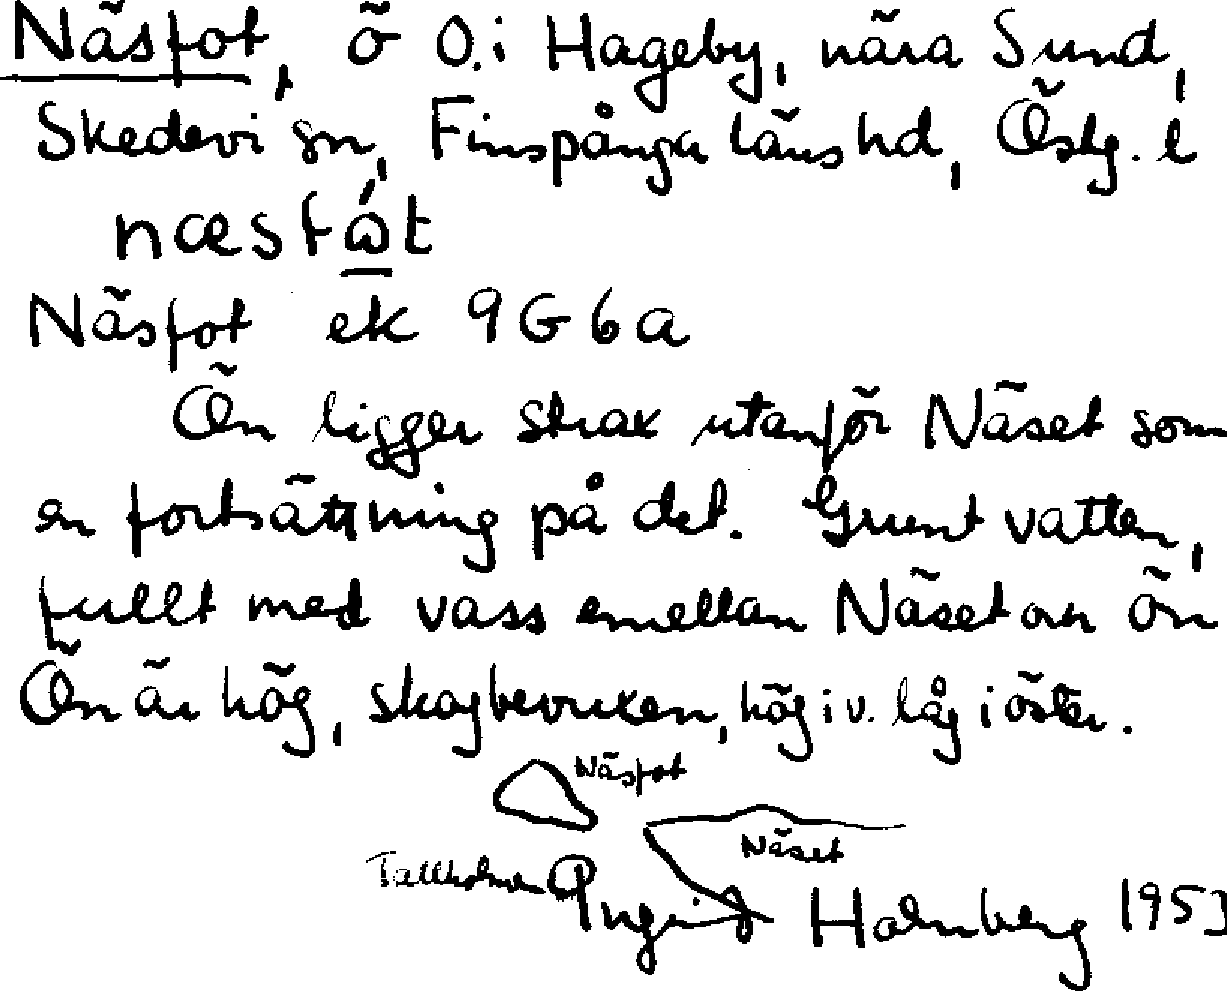 Näsfot, ö O. i Hageby, nära Sund,
Skedevi sn, Finspånga läns hd, Östg. l
Näsfot ek 9G6a
Ön ligger strax utanför Näset som
en fortsättning på det. Grunt vatten,
fullt med vass emellan Näset och ön
Ön är hög, skogbevuxen, hög i v. låg i öster.
Näsfot
Näset
Tallholmen
Ingrid Holmberg 1953